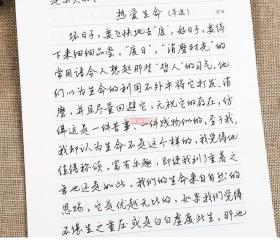 热爱生命(节选)
坏日子,要飞快地去"度",好日子,要停
下来细细品尝。"度日"、"消磨时光"的
常用语令人想起那些"哲人"的习气。他
们以为生命的利用不外乎将它打发、消
磨,并且尽量回避它,无视它的存在,仿
佛这是一件苦事、一件贱物似的。至于我,
我却认为生命不是这个样的,我觉得它
值得称颂,富有乐趣,即使我到了垂暮之
年也还是如此。我们的生命来自自然的
恩赐,它是优越无比的,如果我们觉得
不堪生之重压或是白白虚度此生,那也